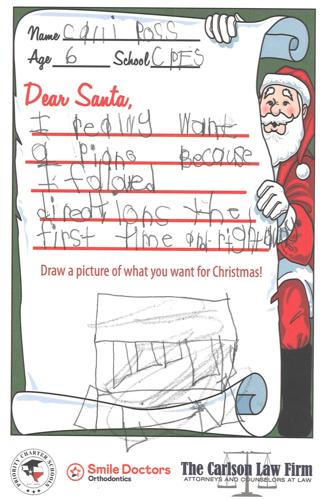 Name Calli Poss
Age 6 School CPES
Dear Santa,
I really want
a piano Because
I folowed
directions the
first time and right away
Draw a picture of what you want for Christmas!
PRIORITY CHARTER SCHOOLS
Smile Doctors
Orthodontics
The Carlson Law Firm
ATTORNEYS AND COUNSELORS AT LAW